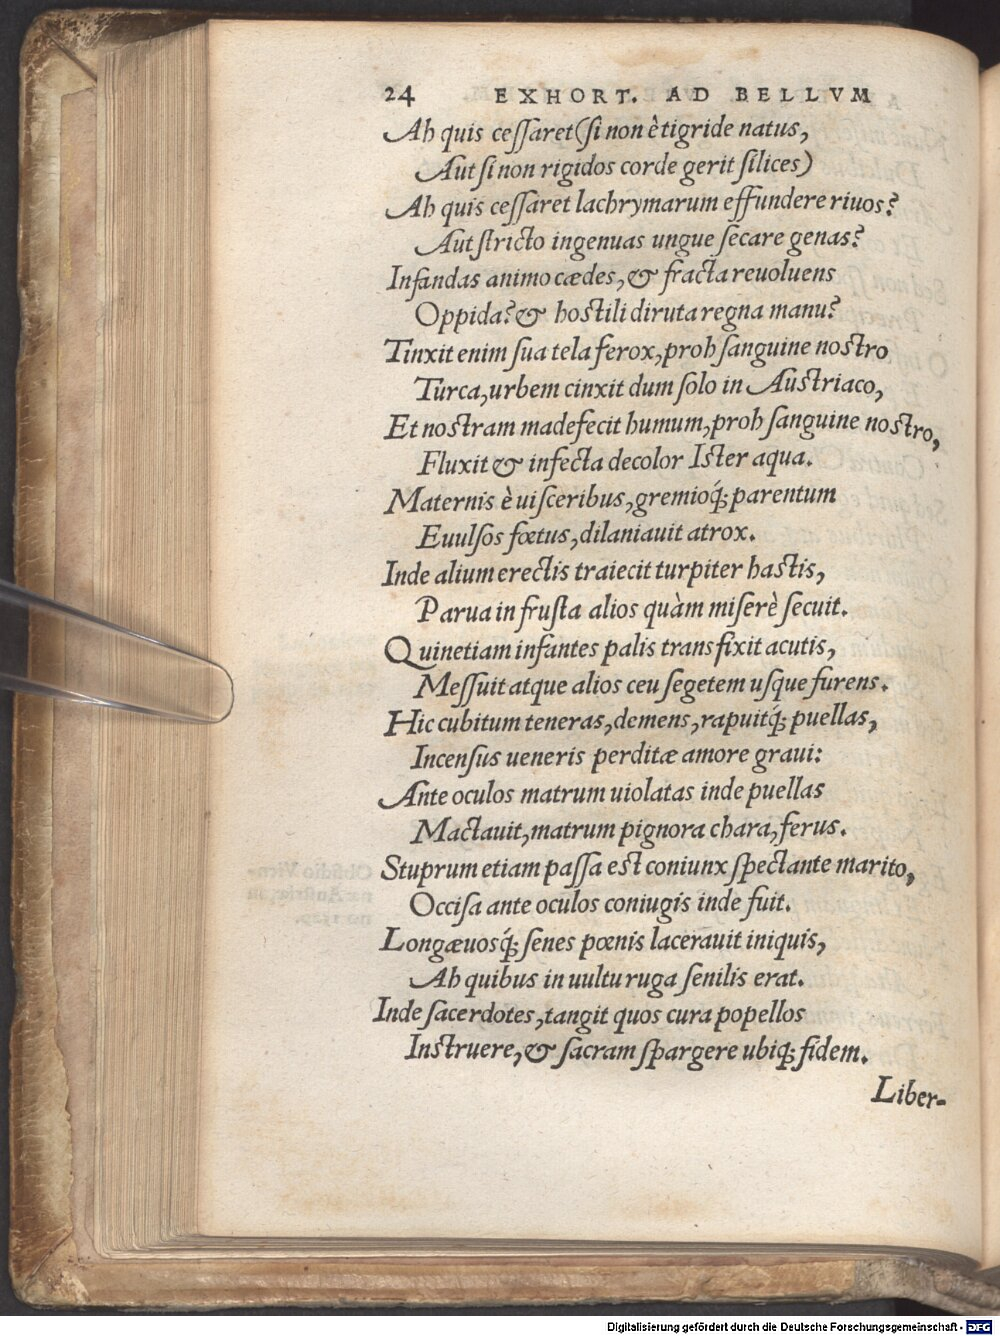 24 EXHORT. AD BELLVM
Ah quis cessaret (si non è tigride natus,
Aut si non rigidos corde gerit silices)
Ah quis cessaret lachrymarum effundere riuos?
Aut stricto ingenuas ungue secare genas?
Infandas animo cædes, & fracta reuoluens
Oppida? & hostili diruta regna manu?
Tinxit enim sua tela ferox, proh sanguine nostro
Turca, urbem cinxit dum solo in Austriaco,
Et nostram madefecit humum, proh sanguine nostro,
Fluxit & infecta decolor Ister aqua.
Maternis è uisceribus, gremioq́; parentum
Euulsos fœtus, dilaniauit atrox.
Inde alium erectis traiecit turpiter hastis,
Parua in frusta alios quàm miserè secuit.
Quinetiam infantes palis transfixit acutis,
Messuit atque alios ceu segetem usque furens.
Hic cubitum teneras, demens, rapuitq́; puellas,
Incensus ueneris perditæ amore graui:
Ante oculos matrum uiolatas inde puellas
Mactauit, matrum pignora chara, ferus.
Stuprum etiam passa est coniunx spectante marito,
Occisa ante oculos coniugis inde fuit.
Longæuosq́; senes pœnis lacerauit iniquis,
Ah quibus in uultu ruga senilis erat.
Inde sacerdotes, tangit quos cura popellos
Instruere, & sacram spargere ubiq; fidem.
Liber-
Digitalisierung gefördert durch die Deutsche Forschungsgemeinschaft - DFG